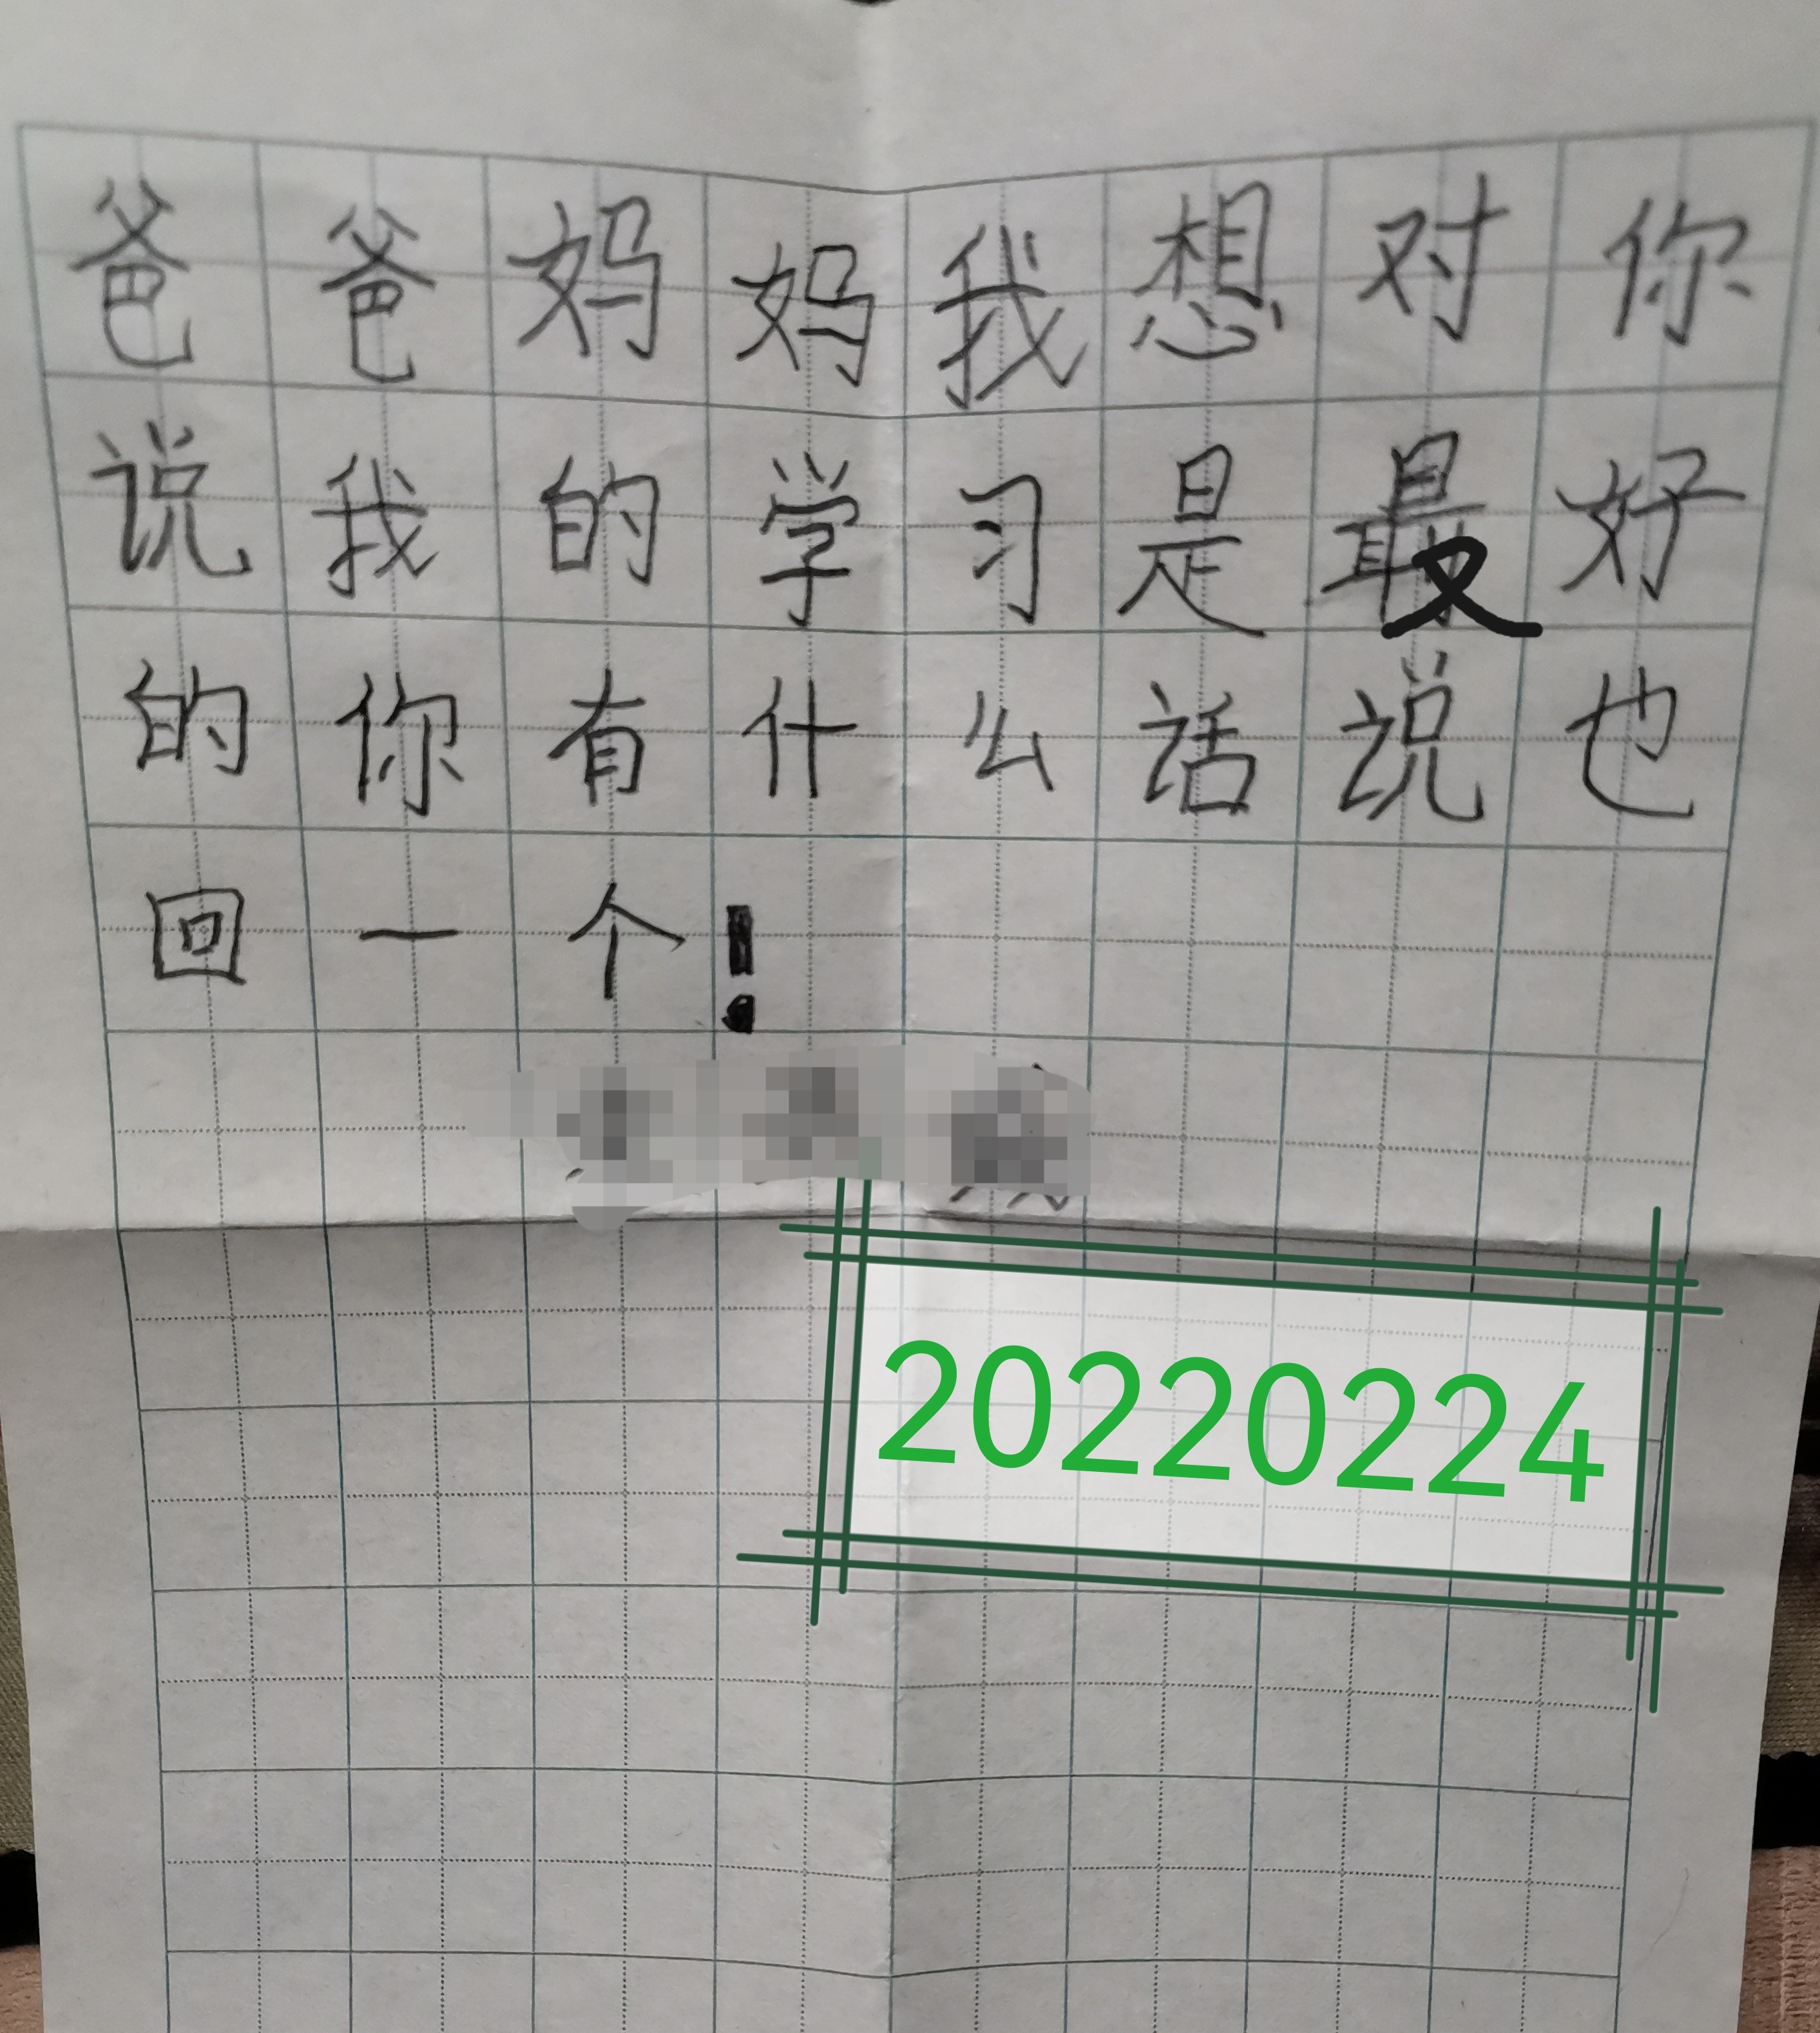 爸爸妈妈我想对你
说我的学习是最好
的你有什么话说也
回一个!
20220224